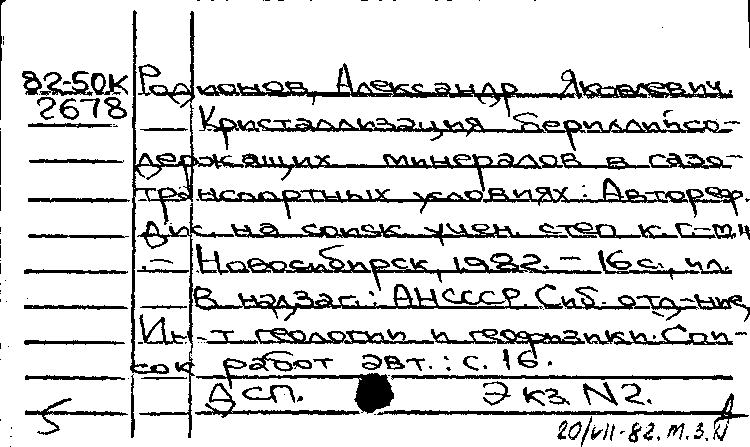 82-50К Родионов, Александр Яковлевич.
2678
Кристаллизация бериллийсо-
держащих минералов в газо-
транспортных условиях: Автореф.
Дис. на соиск. учен. степ к. г.-м.н
.- Новосибирск, 1982. - 16 с., ил.
В надзаг.: АН СССР. Сиб. отд-ние,
Ин-т геологии и геофизики. Спи-
сок работ авт.: с. 16.
ДСП. Экз. N2.
5 20/VII-82. м.з.